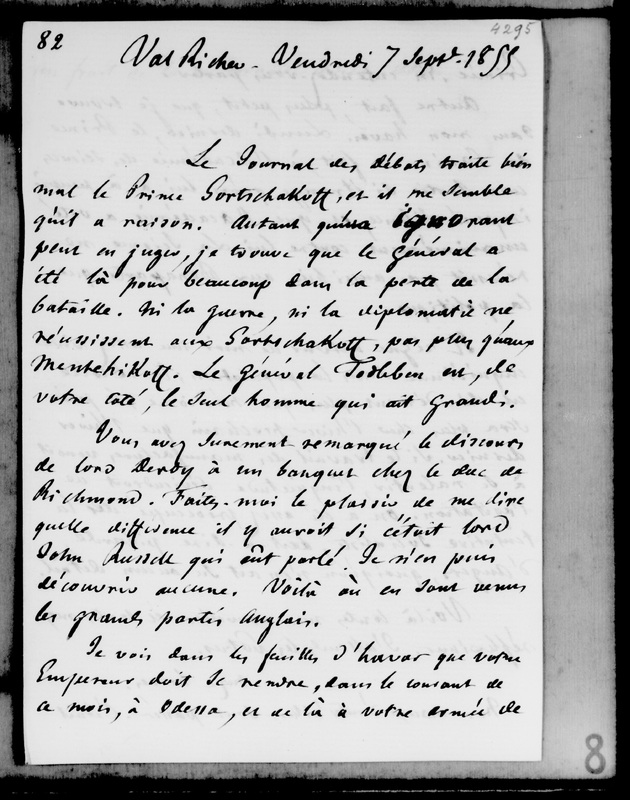 82
4295
Val Richer - Vendredi 7 Septe. 1855
Le Journal des débats traite bien
mal le Prince Gortschakoff, et il me semble
qu'il a raison. Autant qu'un ignorant
peut en juger, je trouve que le Général a
été là pour beaucoup dans la perte de la
bataille. Ni la guerre, ni la diplomatie ne
réussissent aux Gortschakoff, pas plus qu'aux
Mentchikoff. Le Général Todleben est, de
votre coté, le seul homme qui ait grandi.
Vous avez surement remarqué le discours
de lord Derby à un banquet chez le duc de
Richmond. Faites-moi le plaisir de me dire
quelle différence il y auroit si c'étoit lord
John Russell qui eût parlé. Je n'en puis
découvrir aucune. Voilà où en sont venus
les grands partis Anglais.
Je vois dans les feuilles d'havas que votre
Empereur doit se rendre, dans le courant de
ce mois, à Odessa, et de là à votre armée de
8